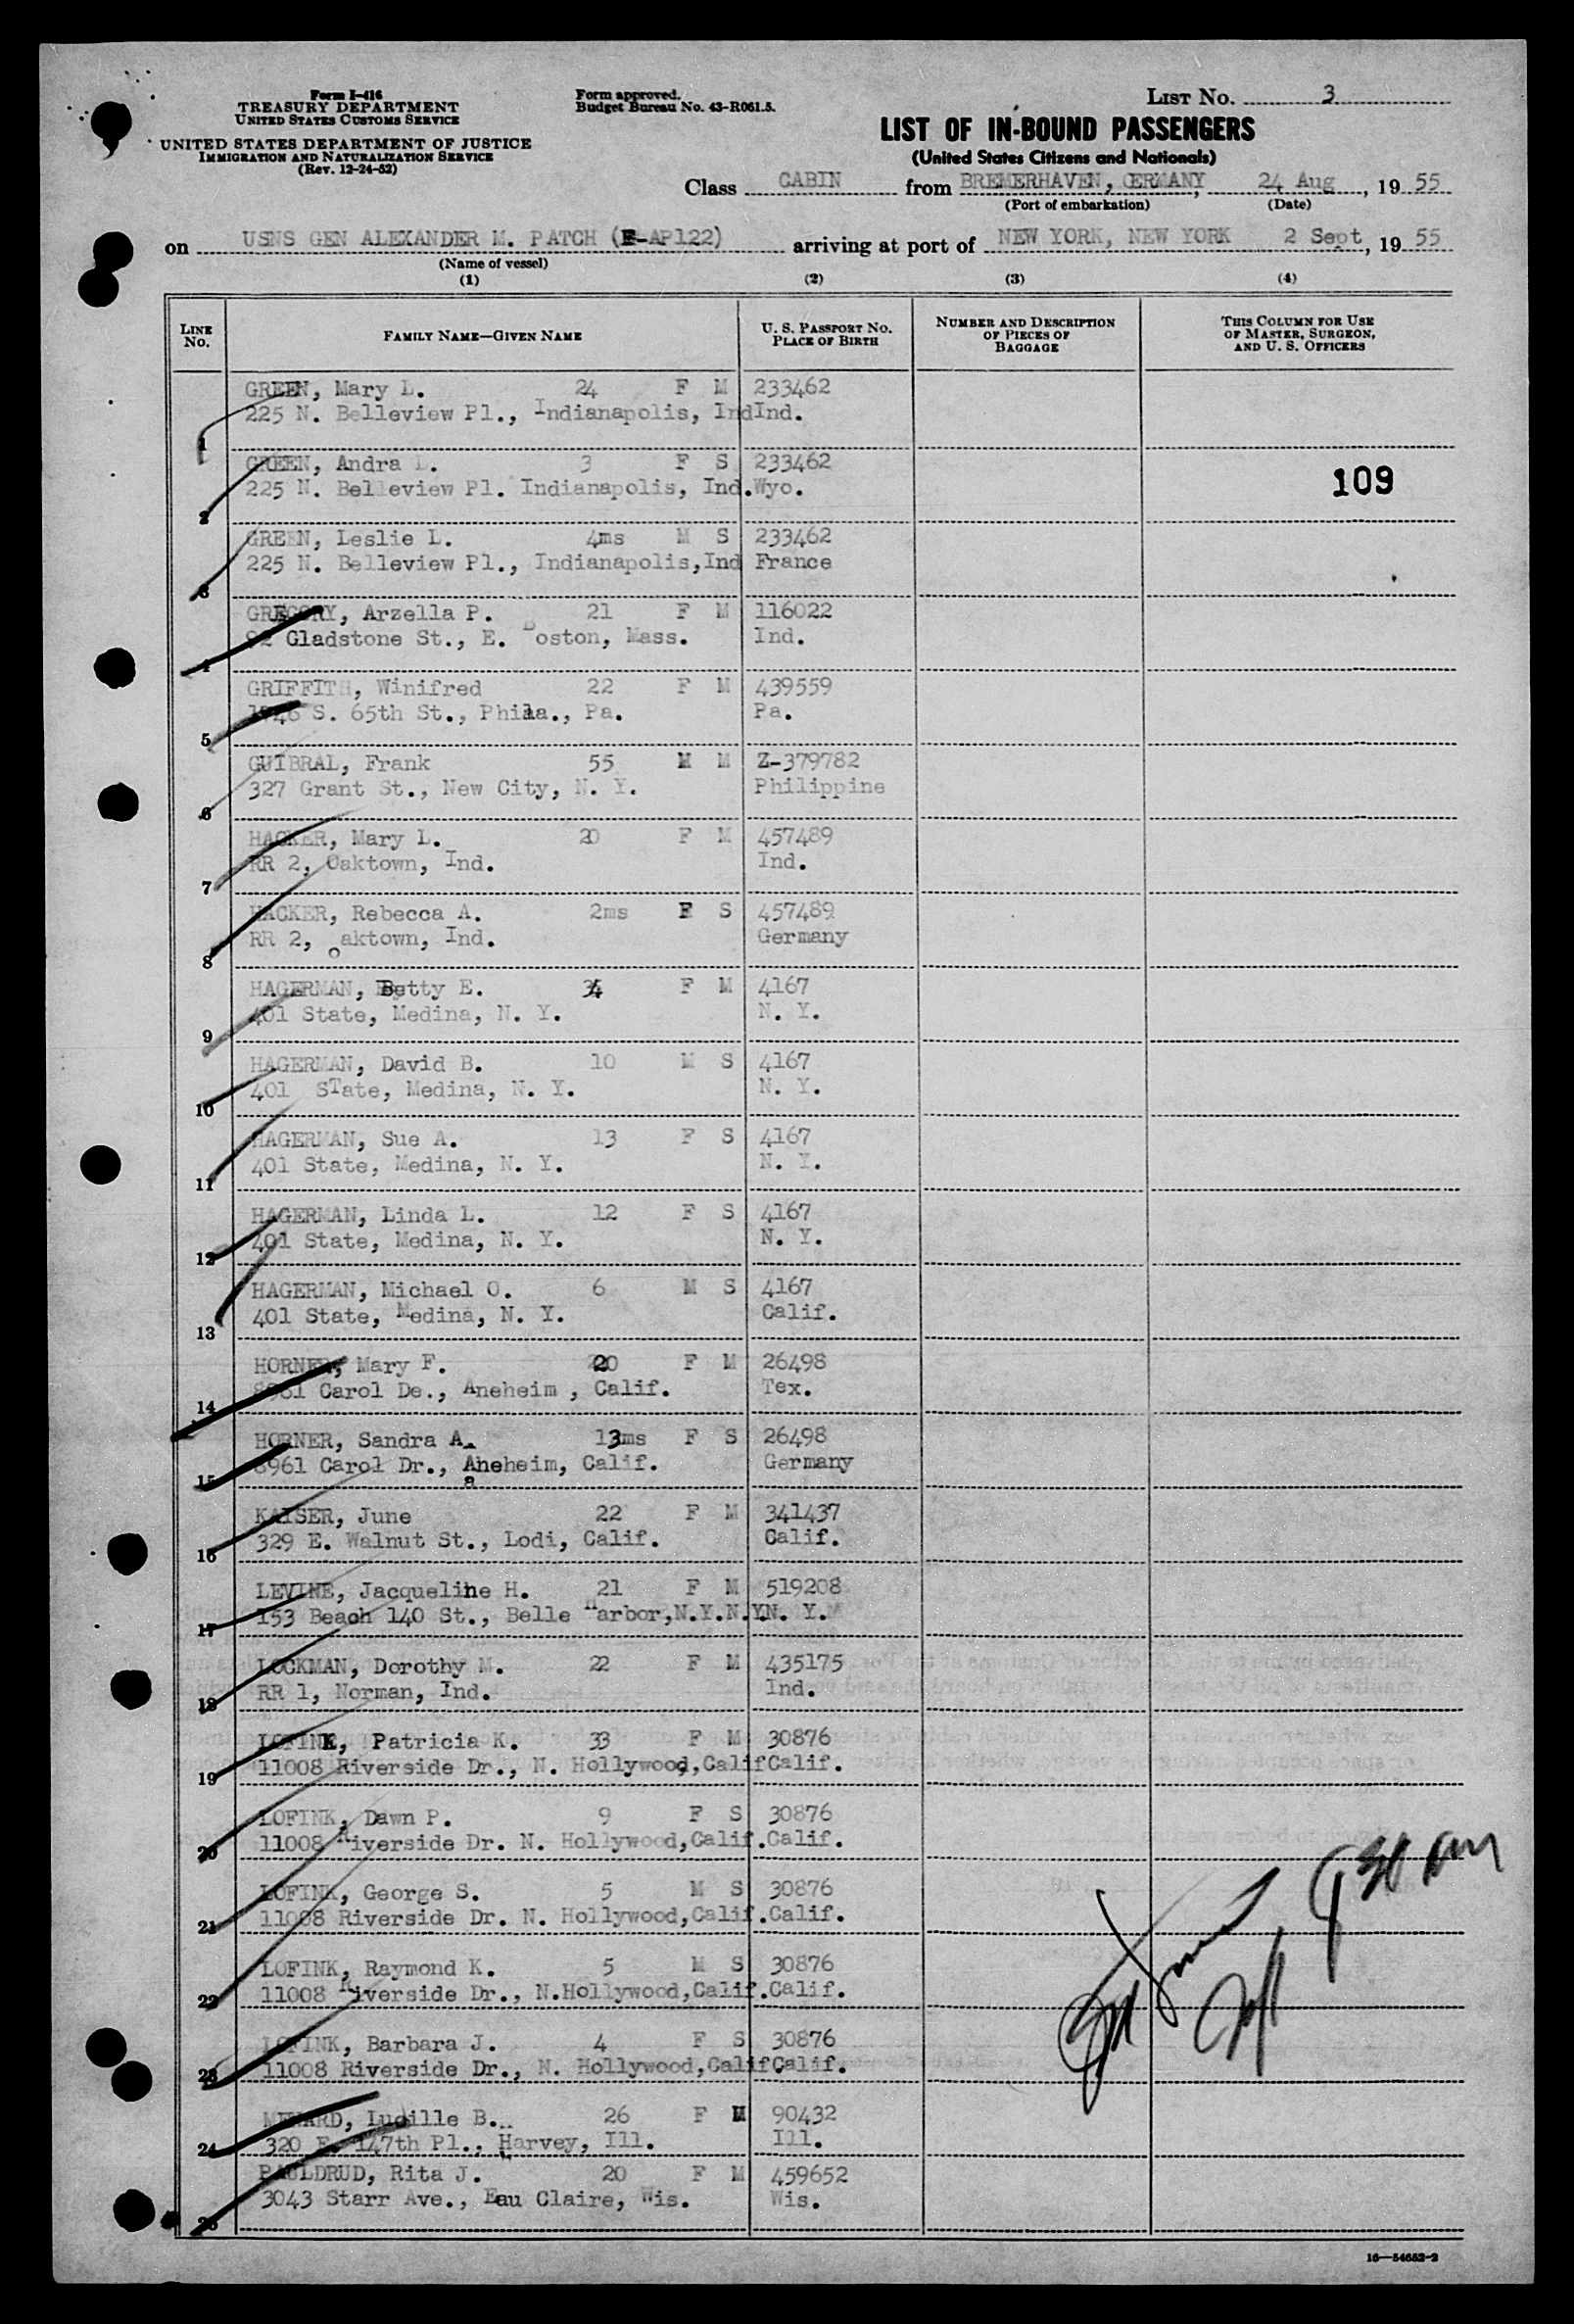 Form I-416
TREASURY DEPARTMENT
UNITED STATES CUSTOMS SERVICE
UNITED STATES DEPARTMENT OF JUSTICE
IMMIGRATION AND NATURALIZATION SERVICE
(Rev. 12-24-52)
Form approved.
Budget Bureau No. 43-R061.5.
LIST No. 3
LIST OF IN-BOUND PASSENGERS
(United States Citizens and Nationals)
Class CABIN from BREMERHAVEN, GERMANY, 24 Aug, 19 55
(Port of embarkation) (Date)
on USNS GEN ALEXANDER M. PATCH (E-AP122) arriving at port of NEW YORK, NEW YORK 2 Sept, 19 55
(Name of vessel)
(1) (2) (3) (4)
LINE No. FAMILY NAME—GIVEN NAME U. S. PASSPORT No. PLACE OF BIRTH NUMBER AND DESCRIPTION OF PIECES OF BAGGAGE THIS COLUMN FOR USE OF MASTER, SURGEON, AND U. S. OFFICERS
GREEN, Mary L. 24 F M 233462
1 225 N. Belleview Pl., Indianapolis, Ind Ind.
GREEN, Andra L. 3 F S 233462
2 225 N. Belleview Pl. Indianapolis, Ind. Wyo.
109
GREEN, Leslie L. 4ms M S 233462
3 225 N. Belleview Pl., Indianapolis,Ind France
GREGORY, Arzella P. 21 F M 116022
4 92 Gladstone St., E. Boston, Mass. Ind.
GRIFFITH, Winifred 22 F M 439559
5 S. 65th St., Phila., Pa. Pa.
GUIBRAL, Frank 55 M M Z-379782
6 327 Grant St., New City, N. Y. Philippine
HACKER, Mary L. 20 F M 457489
7 RR 2, Oaktown, Ind. Ind.
HACKER, Rebecca A. 2ms F S 457489
8 RR 2, oaktown, Ind. Germany
HAGERMAN, Betty E. 34 F M 4167
9 401 State, Medina, N. Y. N. Y.
HAGERMAN, David B. 10 M S 4167
10 401 STate, Medina, N. Y. N. Y.
HAGERMAN, Sue A. 13 F S 4167
11 401 State, Medina, N. Y. N. Y.
HAGERMAN, Linda L. 12 F S 4167
12 401 State, Medina, N. Y. N. Y.
HAGERMAN, Michael O. 6 M S 4167
13 401 State, Medina, N. Y. Calif.
HORNER, Mary F. 20 F M 26498
14 8961 Carol De., Aneheim , Calif. Tex.
HORNER, Sandra A. 13ms F S 26498
15 8961 Carol Dr., Aneheim, Calif. Germany
a
KAYSER, June 22 F M 341437
16 329 E. Walnut St., Lodi, Calif. Calif.
LEVINE, Jacqueline H. 21 F M 519208
17 153 Beach 140 St., Belle Harbor,N.Y.N.Y. N. Y.
LOCKMAN, Dorothy M. 22 F M 435175
18 RR 1, Norman, Ind. Ind.
LOFINK, Patricia K. 33 F M 30876
19 11008 Riverside Dr., N. Hollywood,Calif Calif.
LOFINK, Dawn P. 9 F S 30876
20 11008 Riverside Dr. N. Hollywood,Calif. Calif.
LOFINK, George S. 5 M S 30876
21 11008 Riverside Dr. N. Hollywood,Calif. Calif.
LOFINK, Raymond K. 5 M S 30876
22 11008 Riverside Dr., N.Hollywood,Calif. Calif.
LOFINK, Barbara J. 4 F S 30876
23 11008 Riverside Dr., N. Hollywood,Calif Calif.
MENARD, Lucille B. 26 F M 90432
24 320 E. 147th Pl., Harvey, Ill. Ill.
PAULDRUD, Rita J. 20 F M 459652
25 3043 Starr Ave., Eau Claire, Wis. Wis.
930 am
16—54652-2